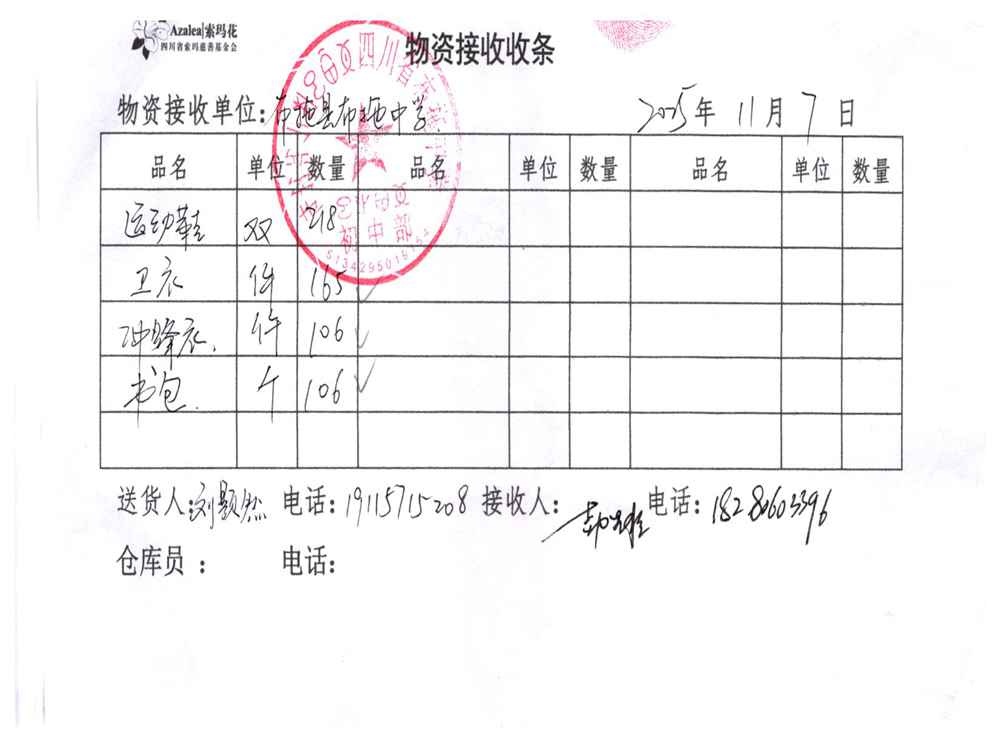 Azalea|索玛花
四川省索玛慈善基金会
物资接收收条
物资接收单位:布拖县布拖中学.
2025年 11月 7日
品名 单位 数量 品名 单位 数量 品名 单位 数量
运动鞋 双 218
卫衣 件 165 ✓
冲锋衣. 件 106 ✓
书包. 个 106 ✓
送货人:刘颢然 电话:19115715208 接收人: 电话:18280603396
仓库员 : 电话:
四川省布拖
初中部